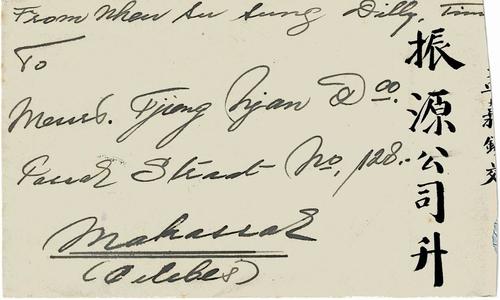 From Nhen Su Sung Dilly, Tim
To
Messrs. Tjiong Njan & Co.
Passar Straat No, 128.-
Makassar
(Celebes)
振源公司升